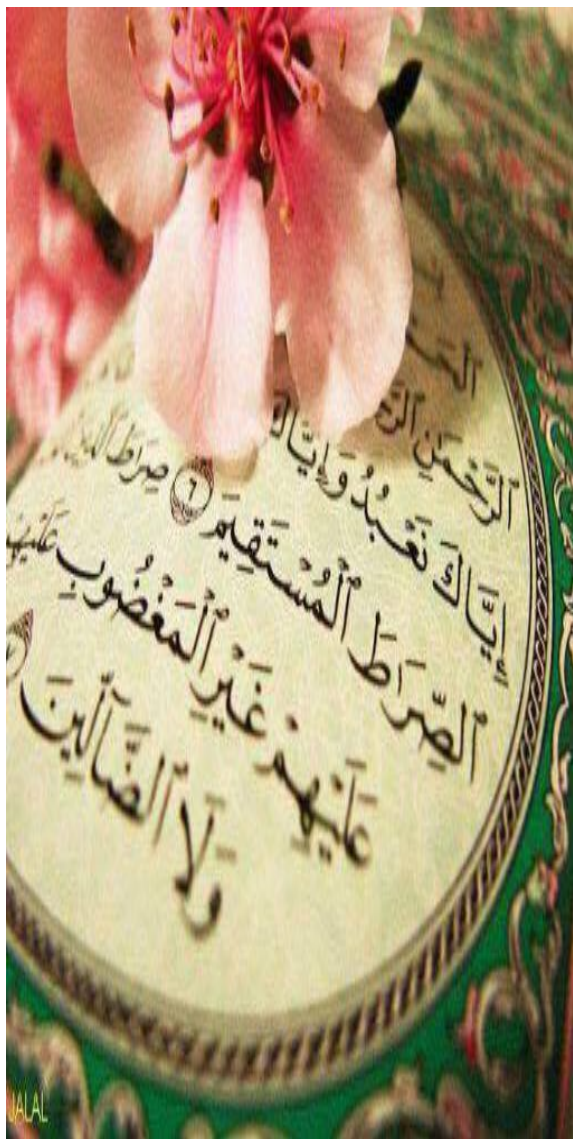 ٱلرَّحْمَٰنِ
إِيَّاكَ نَعْبُدُ وَإِيَّاكَ
ٱلصِّرَٰطَ ٱلْمُسْتَقِيمَ ٦ صِرَٰطَ ٱلَّذِينَ
عَلَيْهِمْ غَيْرِ ٱلْمَغْضُوبِ عَلَيْهِمْ
وَلَا ٱلضَّآلِّينَ
JALAL